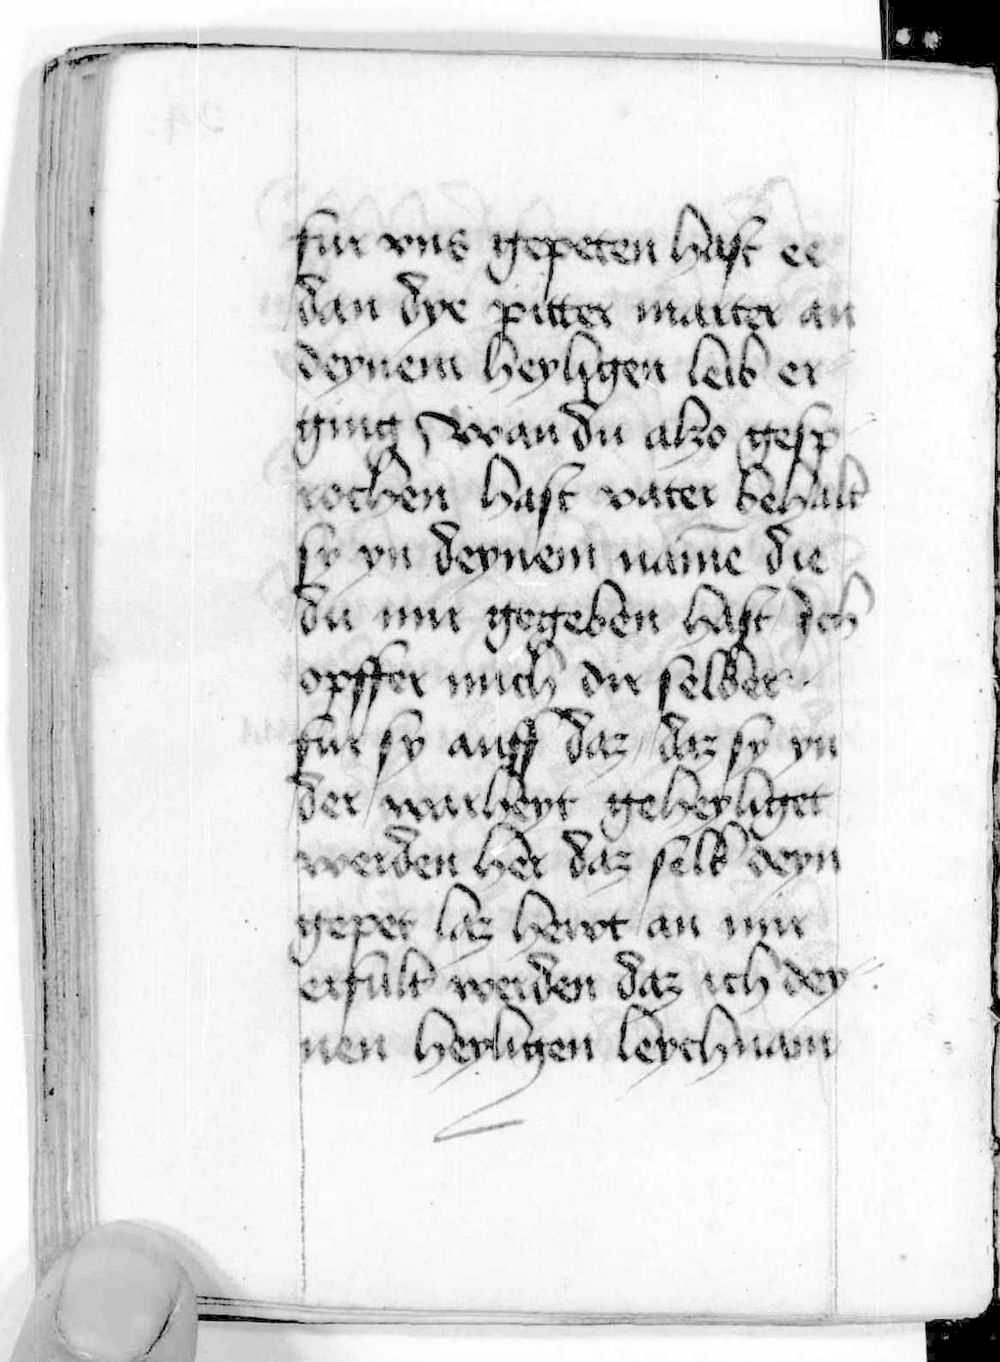 fur vns gepeten hast ee
dan dye pitter marter an
deynem heyligen leib er
ging wan du also gesp
rochen hast vater behalt
sy yn deynem namē die
du mir gegeben hast Ich
opffer mich dir selber
fur sy auff daz daz sy yn
der warheyt geheyliget
werden her daz selb deyn
gepet laz hewt an mir
erfult werden daz ich dey
nen heyligen leychnam